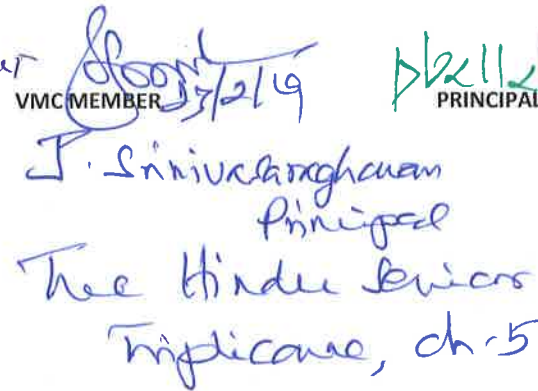 13/2/19
VMC MEMBER PRINCIPAL
J. Srinivasaraghavan
Principal
The Hindu Senior
Triplicane, ch-5